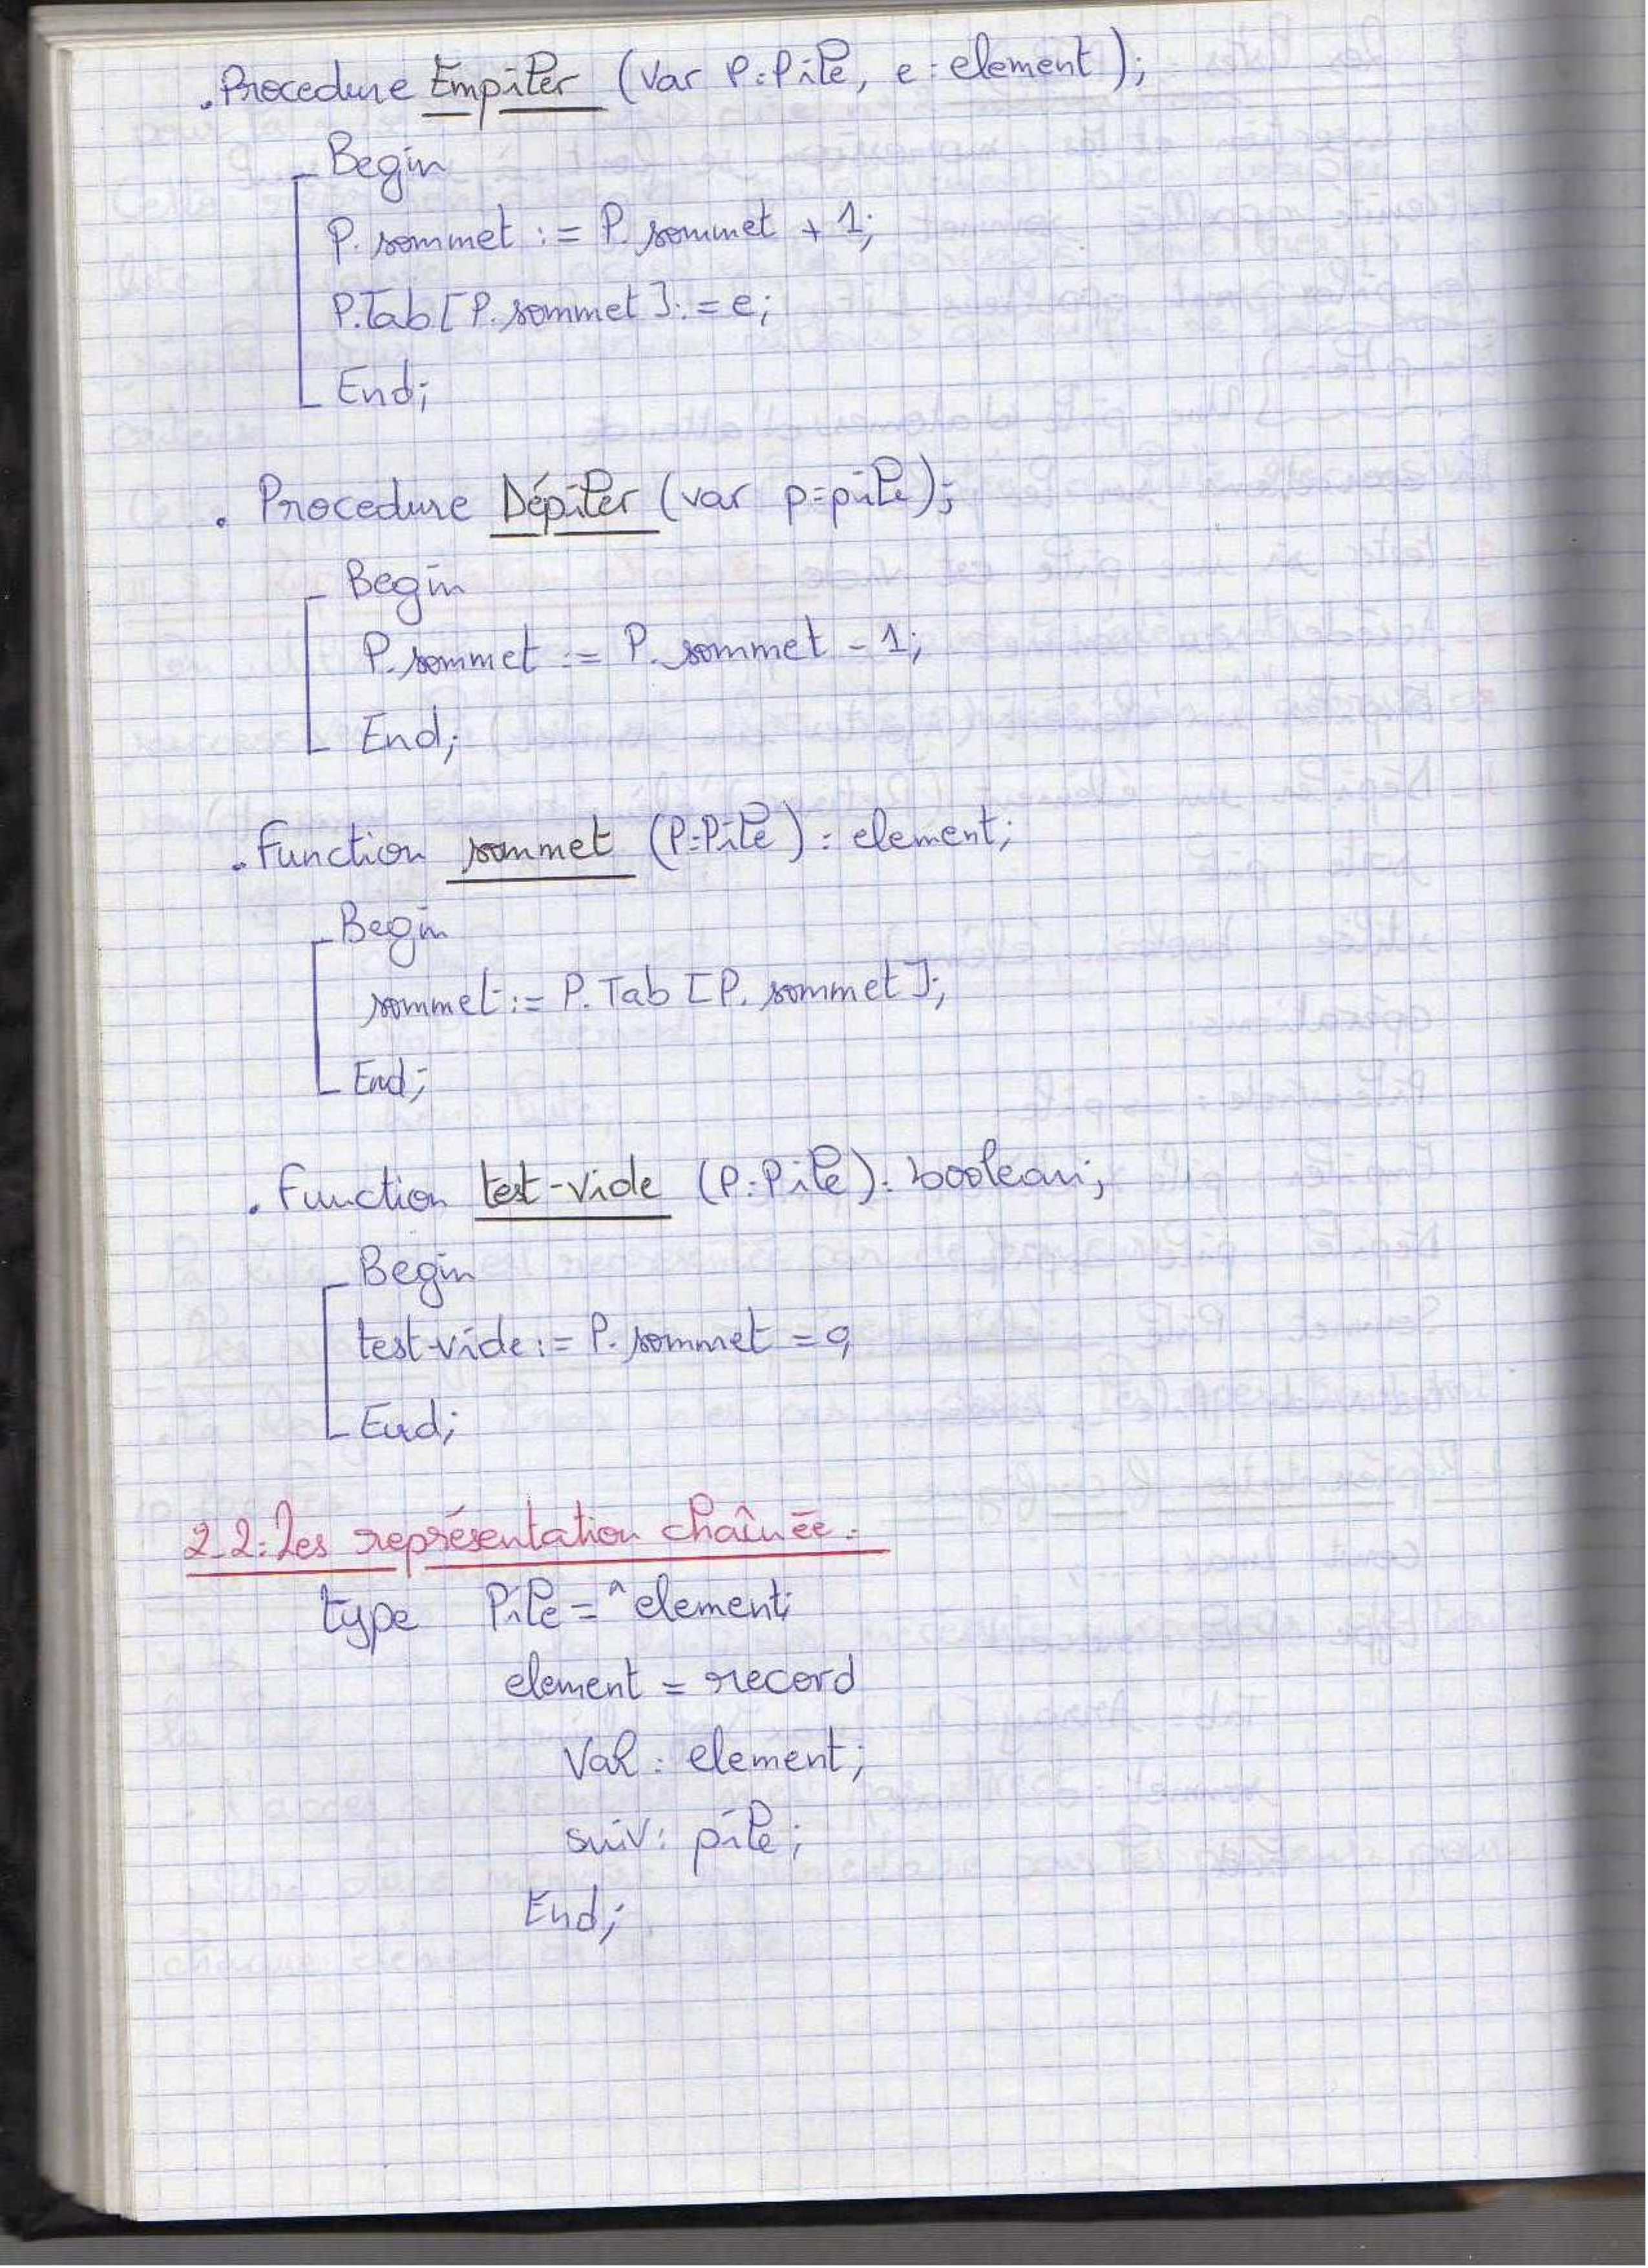 . Procedure Empiler (Var P:Pile, e:element);
Begin
P.sommet := P.sommet + 1;
P.Tab[P.sommet]:=e;
End;
. Procedure Dépiler (var p:pile);
Begin
P.sommet := P.sommet - 1;
End;
. Function sommet (P:Pile) : element;
Begin
sommet := P.Tab [P.sommet];
End;
. Function test-vide (P:Pile) : boolean;
Begin
test-vide := P.sommet = 0;
End;
2-2: Les représentation chaînée.
type Pile = ^element;
element = record
Val : element;
suiv : pile;
End;